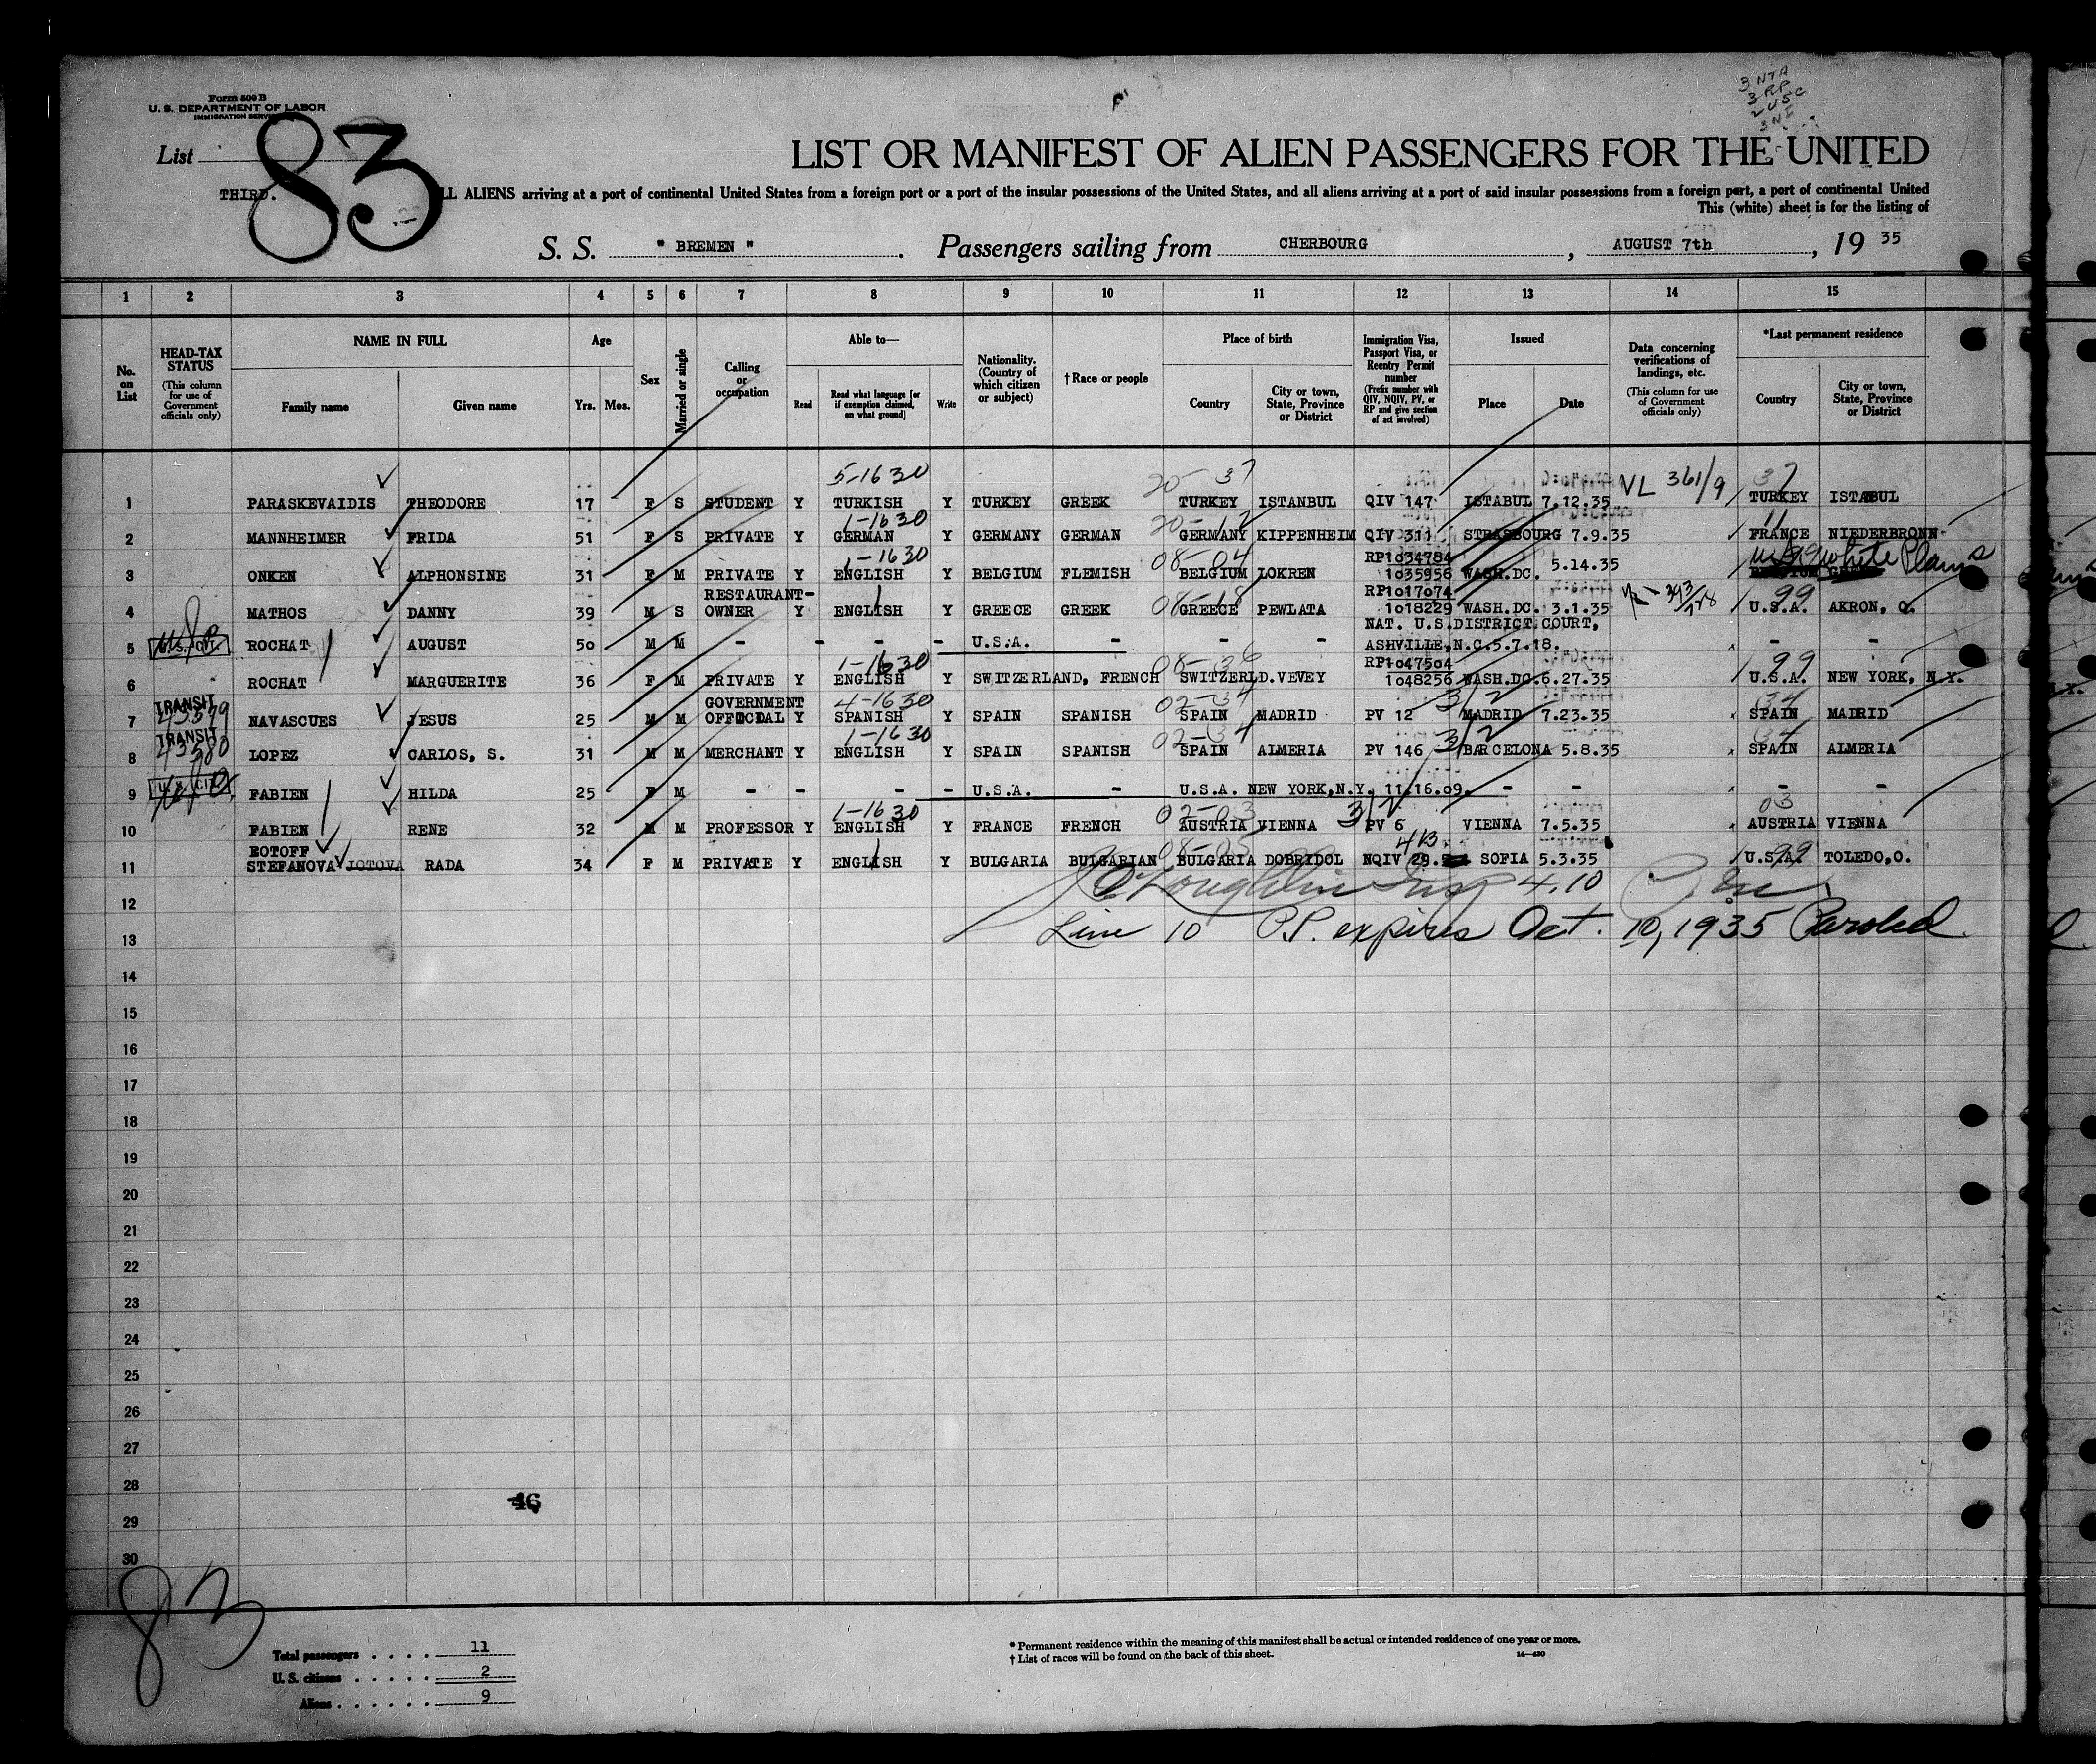 3 NTA
3 RP
2 USC
3 NI
Form 500 B
U. S. DEPARTMENT OF LABOR
IMMIGRATION SERVICE
List 83
LIST OR MANIFEST OF ALIEN PASSENGERS FOR THE UNITED
THIRD. LL ALIENS arriving at a port of continental United States from a foreign port or a port of the insular possessions of the United States, and all aliens arriving at a port of said insular possessions from a foreign port, a port of continental United
This (white) sheet is for the listing of
S. S. " BREMEN " . Passengers sailing from CHERBOURG , AUGUST 7th , 19 35
1 2 3 4 5 6 7 8 9 10 11 12 13 14 15
No. on List
HEAD-TAX STATUS (This column for use of Government officials only)
NAME IN FULL
Family name Given name
Age
Yrs. Mos.
Sex
Married or single
Calling or occupation
Able to—
Read Read what language [or if exemption claimed, on what ground] Write
Nationality. (Country of which citizen or subject)
†Race or people
Place of birth
Country City or town, State, Province or District
Immigration Visa, Passport Visa, or Reentry Permit number (Prefix number with QIV, NQIV, PV, or RP and give section of act involved)
Issued
Place Date
Data concerning verifications of landings, etc. (This column for use of Government officials only)
*Last permanent residence
Country City or town, State, Province or District
5-1630 20- 37 VL 361/9 37
1 PARASKEVAIDIS THEODORE 17 F S STUDENT Y TURKISH Y TURKEY GREEK TURKEY ISTANBUL QIV 147 ISTABUL 7.12.35 TURKEY ISTABUL
1-1630 20-12 11
2 MANNHEIMER FRIDA 51 F S PRIVATE Y GERMAN Y GERMANY GERMAN GERMANY KIPPENHEIM QIV 311 STRASBOURG 7.9.35 FRANCE NIEDERBRONN
1-1630 08-04 RP1034784 99 White Plains
3 ONKEN ALPHONSINE 31 F M PRIVATE Y ENGLISH Y BELGIUM FLEMISH BELGIUM LOKREN 1035956 WASH.DC. 5.14.35 BELGIUM
RESTAURANT- 08-18 RP1017074 393/728 99
4 MATHOS DANNY 39 M S OWNER Y ENGLISH Y GREECE GREEK GREECE PEWLATA 1018229 WASH.DC. 3.1.35 U.S.A. AKRON, O.
NAT. U.S.DISTRICT COURT,
5 U.S. CIT. ROCHAT AUGUST 50 M M - - - - U.S.A. - - - ASHVILLE,N.C.5.7.18. - -
1-1630 08-36 RP1047504 99
6 ROCHAT MARGUERITE 36 F M PRIVATE Y ENGLISH Y SWITZERLAND, FRENCH SWITZERLD.VEVEY 1048256 WASH.DC.6.27.35 U.S.A. NEW YORK, N.Y.
TRANSIT 43579 GOVERNMENT 4-1630 02-34 3/2 34
7 NAVASCUES JESUS 25 M M OFFICIAL Y SPANISH Y SPAIN SPANISH SPAIN MADRID PV 12 MADRID 7.23.35 SPAIN MADRID
TRANSIT 43580 1-1630 02-34 3/2 34
8 LOPEZ CARLOS, S. 31 M M MERCHANT Y ENGLISH Y SPAIN SPANISH SPAIN ALMERIA PV 146 BARCELONA 5.8.35 SPAIN ALMERIA
9 U.S. CIT. FABIEN HILDA 25 F M - - - - U.S.A. - U.S.A. NEW YORK,N.Y. 11.16.09. - - - -
1-1630 02-03 3/2 03
10 FABIEN RENE 32 M M PROFESSOR Y ENGLISH Y FRANCE FRENCH AUSTRIA VIENNA PV 6 VIENNA 7.5.35 AUSTRIA VIENNA
BOTOFF 08-05 4B 99
11 STEFANOVA JOTOVA RADA 34 F M PRIVATE Y ENGLISH Y BULGARIA BULGARIAN BULGARIA DOBRIDOL NQIV 29. SOFIA 5.3.35 U.S.A. TOLEDO,O.
12 O'Loughlin Insp 4.10
13 Line 10 P.P. expires Oct. 10, 1935 Paroled
14
15
16
17
18
19
20
21
22
23
24
25
26
27
28
46
29
30
83
Total passengers . . . . 11
U. S. citizens . . . . . 2
Aliens . . . . . . 9
* Permanent residence within the meaning of this manifest shall be actual or intended residence of one year or more.
† List of races will be found on the back of this sheet.
14—430